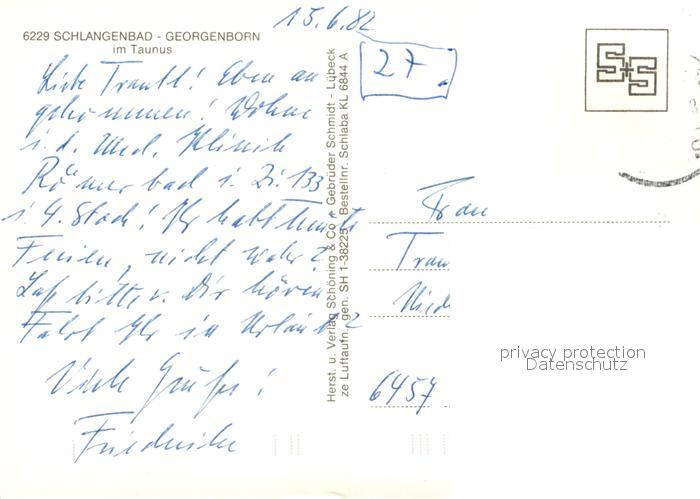 15.6.82
6229 SCHLANGENBAD - GEORGENBORN
im Taunus
27.
S+S
Liebe Traudl! Eben an
gekommen! Wohne
i. d. Med. Klinik
Römerbad i. Zi. 133
i. 4. Stock! Ihr habt heute
Ferien, nicht wahr?
Laß bitte v. Dir hören
Fahrt Ihr in Urlaub?
Viele Grüße!
Friederike
Herst. u. Verlag Schöning & Co + Gebrüder Schmidt - Lübeck
ze Luftaufn. gen. SH 1-38225 Bestellnr. Schlaba KL 6844 A
Frau
Trau
Nied
6457
privacy protection
Datenschutz